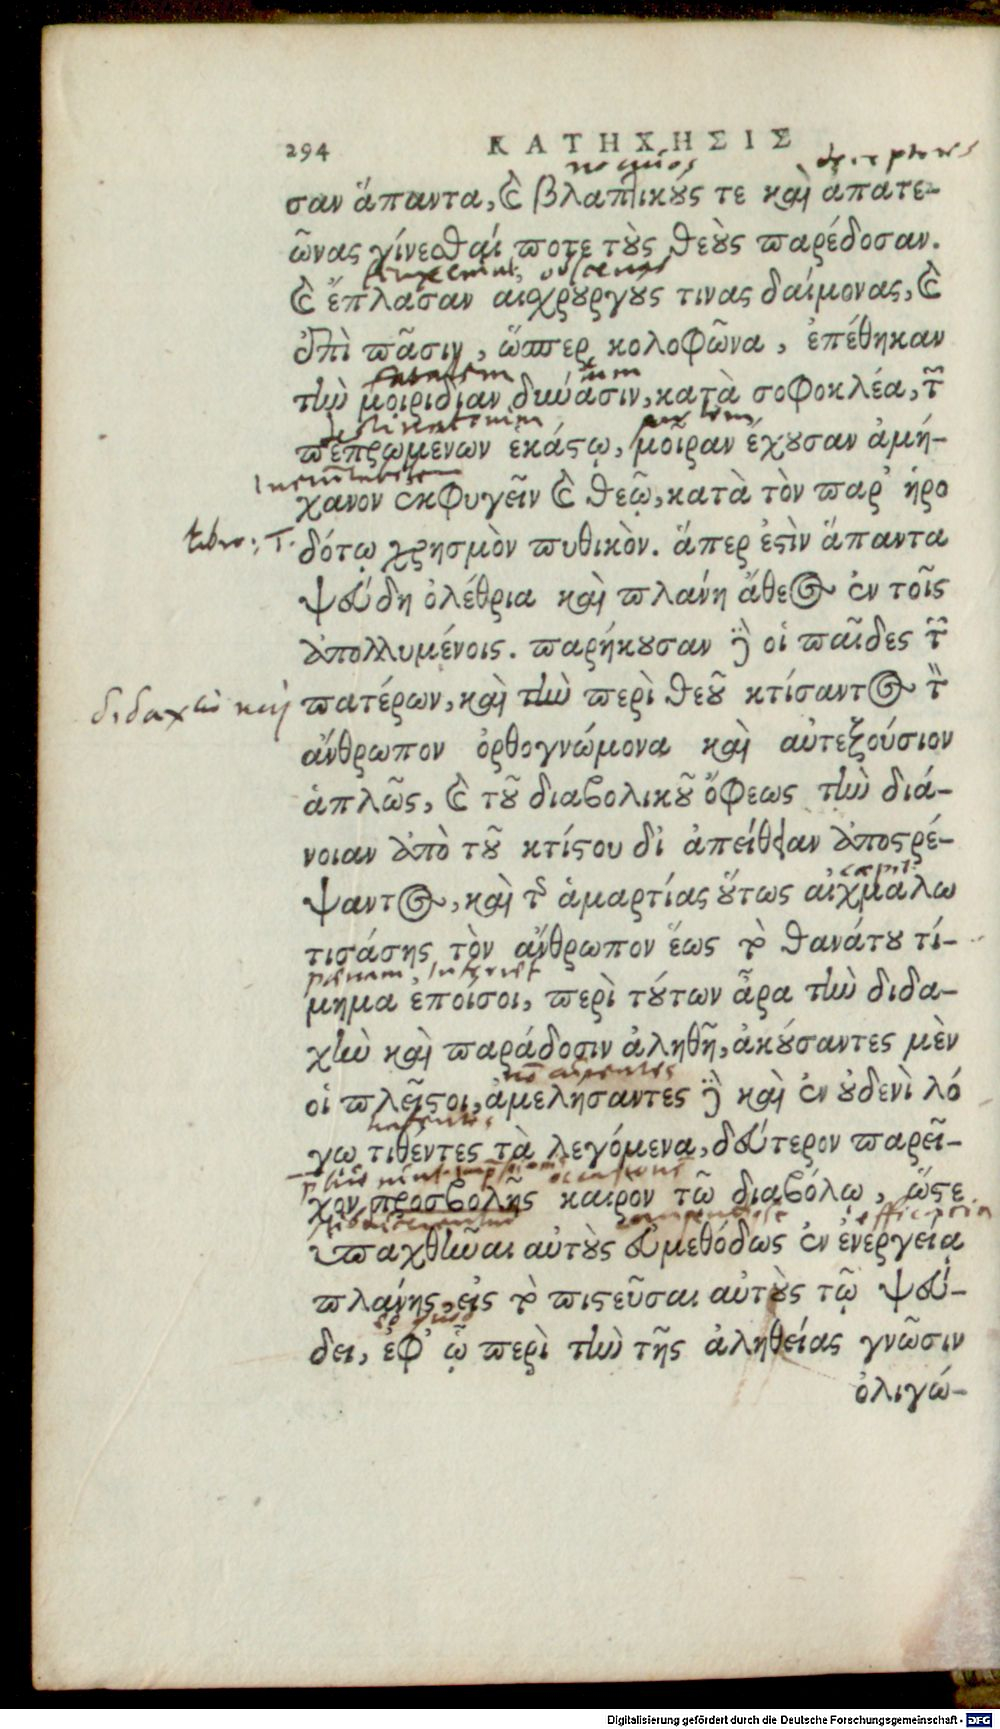 294 ΚΑΤΗΧΗΣΙΣ
σαν ἅπαντα, ϗ βλαπτικούς τε καὶ ἀπατε-
ῶνας γίνεσθαί ποτε τοὺς θεοὺς παρέδοσαν.
ϗ ἔπλασαν αἰσχρουργους τινας δαίμονας, ϗ
ἐπὶ πᾶσιν, ὥσπερ κολοφῶνα, ἐπέθηκαν
τὴν μοιριδίαν δύνασιν, κατὰ σοφοκλέα, τῶν
πεπρωμένων ἑκάστῳ, μοῖραν ἔχουσαν ἀμή-
χανον ἐκφυγεῖν ϗ θεῷ, κατὰ τὸν παρ' ἡρο
δότῳ χρησμὸν πυθικὸν. ἅπερ ἐστὶν ἅπαντα
ψεύδη ὀλέθρια καὶ πλάνη ἄθεος ἐν τοῖς
ἀπολλυμένοις. παρήκουσαν δὲ οἱ παῖδες τῶν
διδαχὴν καὶ
πατέρων, καὶ τὴν περὶ θεοῦ κτίσαντος τὸν
ἄνθρωπον ὀρθογνώμονα καὶ αὐτεξούσιον
ἁπλῶς, ϗ τοῦ διαβολικοῦ ὄφεως τὴν διά-
νοιαν ἀπὸ τοῦ κτίστου δι ἀπείθειαν ἀποστρέ-
capit.
ψαντος, καὶ τῆς ἁμαρτίας οὕτως αἰχμαλω
τισάσης τὸν ἄνθρωπον ἕως τὸ θανάτου τί-
poenam
μημα ἐποίσοι, περὶ τούτων ἆρα τὴν διδα-
χὴν καὶ παράδοσιν ἀληθῆ, ἀκούσαντες μὲν
οἱ πλεῖστοι, ἀμελησαντες δὲ καὶ ἐν οὐδενὶ λό
γω τιθέντες τὰ λεγόμενα, δεύτερον παρεῖ-
χον προσβολῆς καιρον τῶ διαβόλω, ὥστε
ὑπαχθῆναι αὐτοὺς εὐμεθόδως ἐν ἐνεργεια
πλάνης, εἰς τὸ πιστεῦσαι αὐτοὺς τῷ ψεύ-
δει, ἐφ' ᾧ περὶ τὴν τῆς ἀληθείας γνῶσιν
ὀλιγώ-
Digitalisierung gefördert durch die Deutsche Forschungsgemeinschaft - DFG